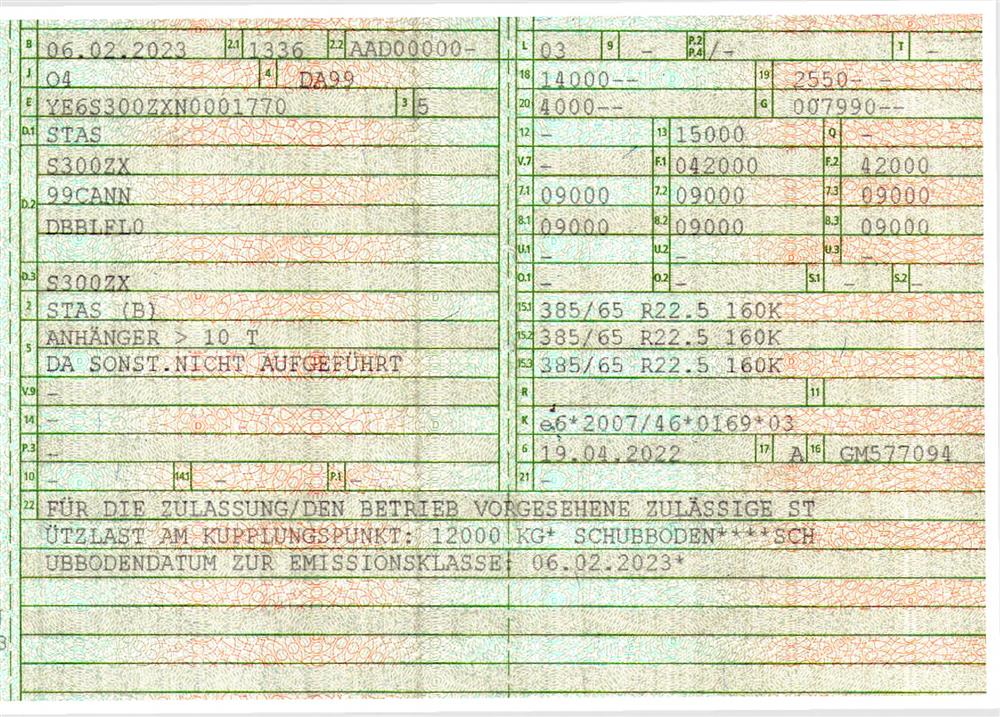 B 06.02.2023 2.1 1336 2.2 AAD00000- L 03 9 - P.2 P.4 /- T -
J O4 4 DA99 18 14000-- 19 2550- -
E YE6S300ZXN0001770 3 5 20 4000-- G 007990--
D.1 STAS 12 - 13 15000 Q -
S300ZX V.7 - F.1 042000 F.2 42000
D.2 99CANN 7.1 09000 7.2 09000 7.3 09000
DBBLFL0 8.1 09000 8.2 09000 8.3 09000
U.1 - U.2 - U.3 -
D.3 S300ZX O.1 - O.2 - S.1 - S.2 -
2 STAS (B) 15.1 385/65 R22.5 160K
5 ANHÄNGER > 10 T 15.2 385/65 R22.5 160K
DA SONST.NICHT AUFGEFÜHRT 15.3 385/65 R22.5 160K
V.9 - R 11
14 - K e6*2007/46*0169*03
P.3 - 6 19.04.2022 17 A 16 GM577094
10 - 14.1 - P.1 - 21 -
22 FÜR DIE ZULASSUNG/DEN BETRIEB VORGESEHENE ZULÄSSIGE ST
ÜTZLAST AM KUPPLUNGSPUNKT: 12000 KG* SCHUBBODEN****SCH
UBBODENDATUM ZUR EMISSIONSKLASSE: 06.02.2023*